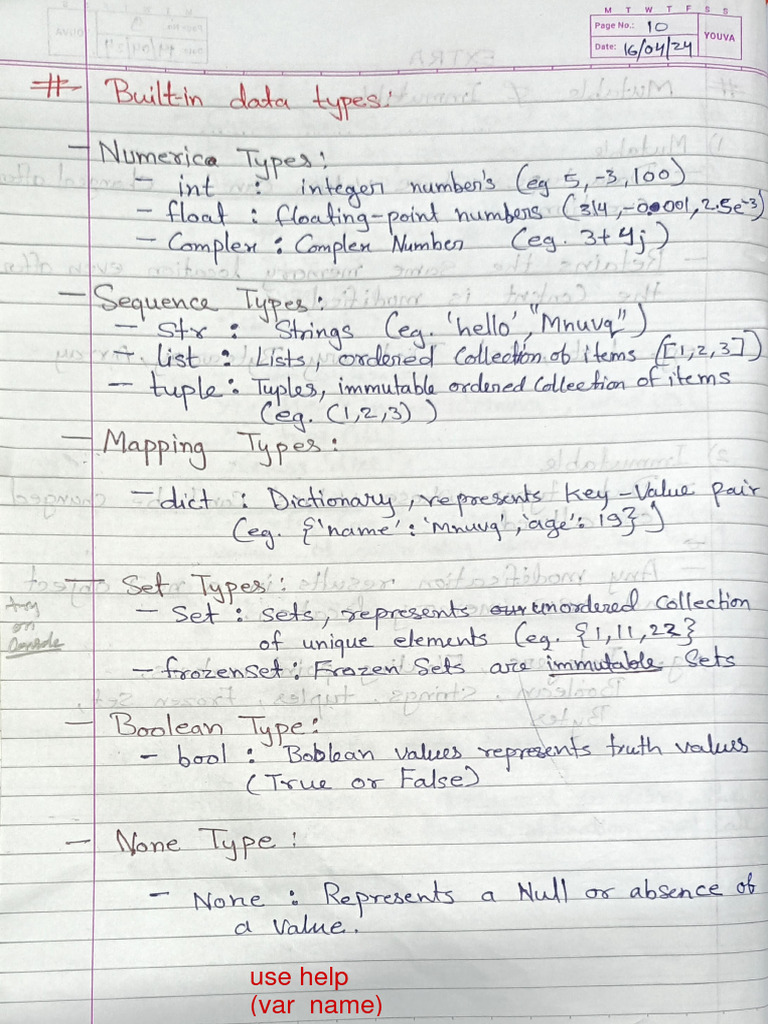 M T W T F S S
Page No.: 10
Date: 16/04/24
YOUVA
# Built-in data types:
- Numerica Types:
- int : integer number's (eg 5, -3, 100)
- float : floating-point numbers (314, -0.0001, 2.5e⁻³)
- Complex : Complex Number (eg. 3+4j)
- Sequence Types:
- str : Strings (eg. 'hello', "Mnuvq")
- list : Lists, ordered Collection of items ([1,2,3])
- tuple : Tuples, immutable ordered Collection of items
(eg. (1,2,3))
- Mapping Types:
- dict : Dictionary, represents Key-Value pair
(eg. {'name': 'Mnuvq', 'age': 19})
- Set Types:
- Set : sets, represents unordered Collection
of unique elements (eg. {1,11,22}
- frozenset : Frozen Sets are immutable Sets
try
on
Console
- Boolean Type:
- bool : Boolean values represents truth values
(True or False)
- None Type:
- None : Represents a Null or absence of
a value.
use help
(var name)